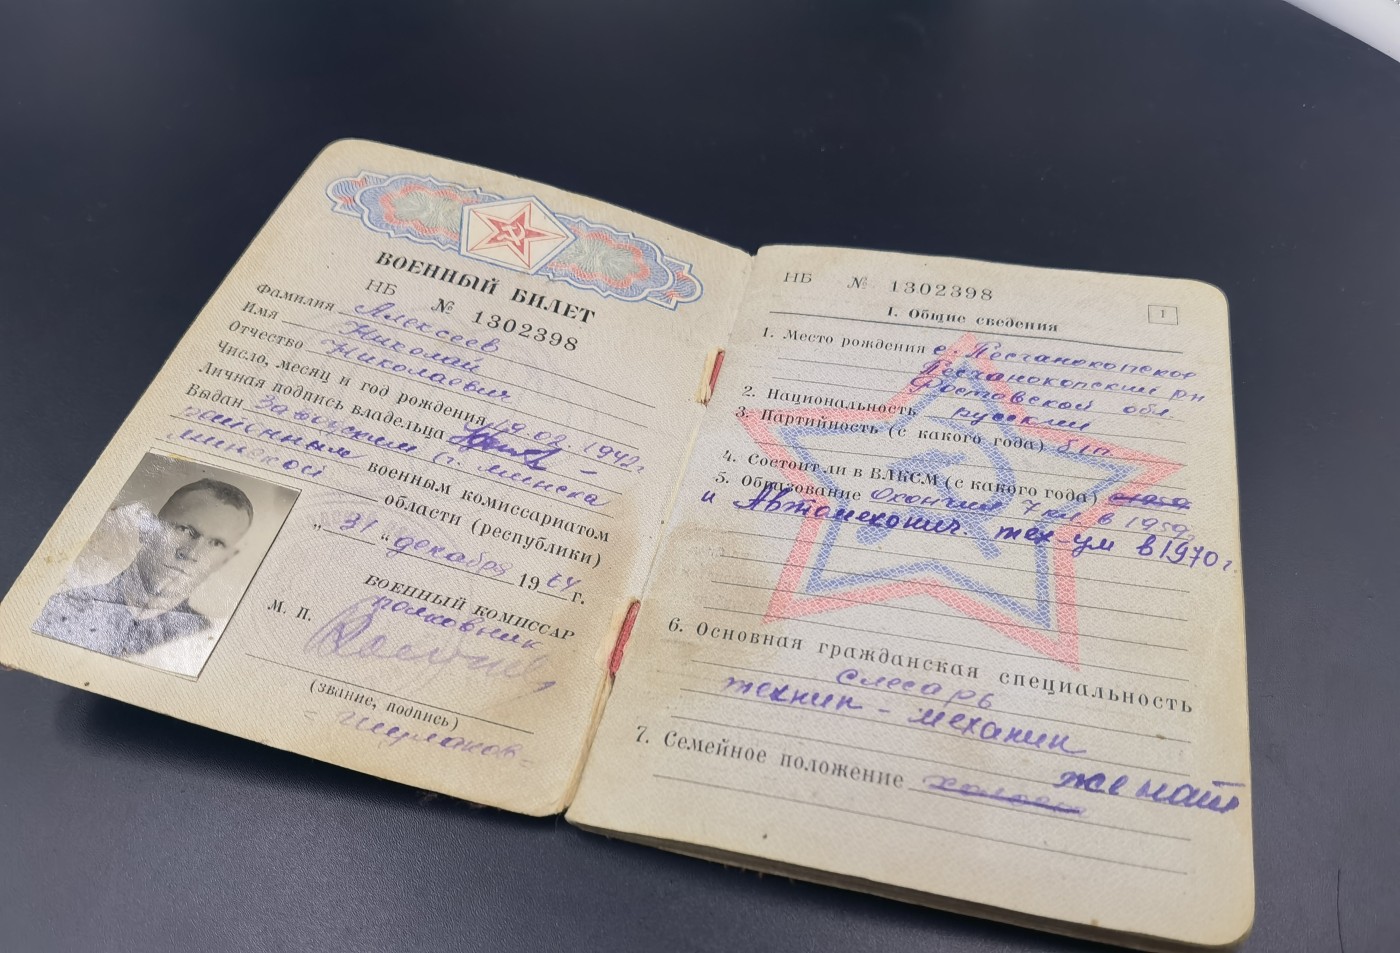 ВОЕННЫЙ БИЛЕТ
НБ № 1302398
Фамилия Алексеев
Имя Николай
Отчество Николаевич
Число, месяц и год рождения 19.02.1942г.
Личная подпись владельца
Выдан Заводским г. Минска
районным военным комиссариатом
Минской области (республики)
„ 31 “ декабря 19 64 г.
ВОЕННЫЙ КОМИССАР
М. П. полковник
(звание, подпись)
НБ № 1302398
1
I. Общие сведения
1. Место рождения с. Песчанокопское
Песчанокопский рн
Ростовской обл.
2. Национальность русский
3. Партийность (с какого года) б/п
4. Состоит ли в ВЛКСМ (с какого года)
5. Образование Окончил 7 кл. в 1959
и Автомеханич. тех-ум в 1970 г.
6. Основная гражданская специальность
слесарь
техник - механик
7. Семейное положение холост женат